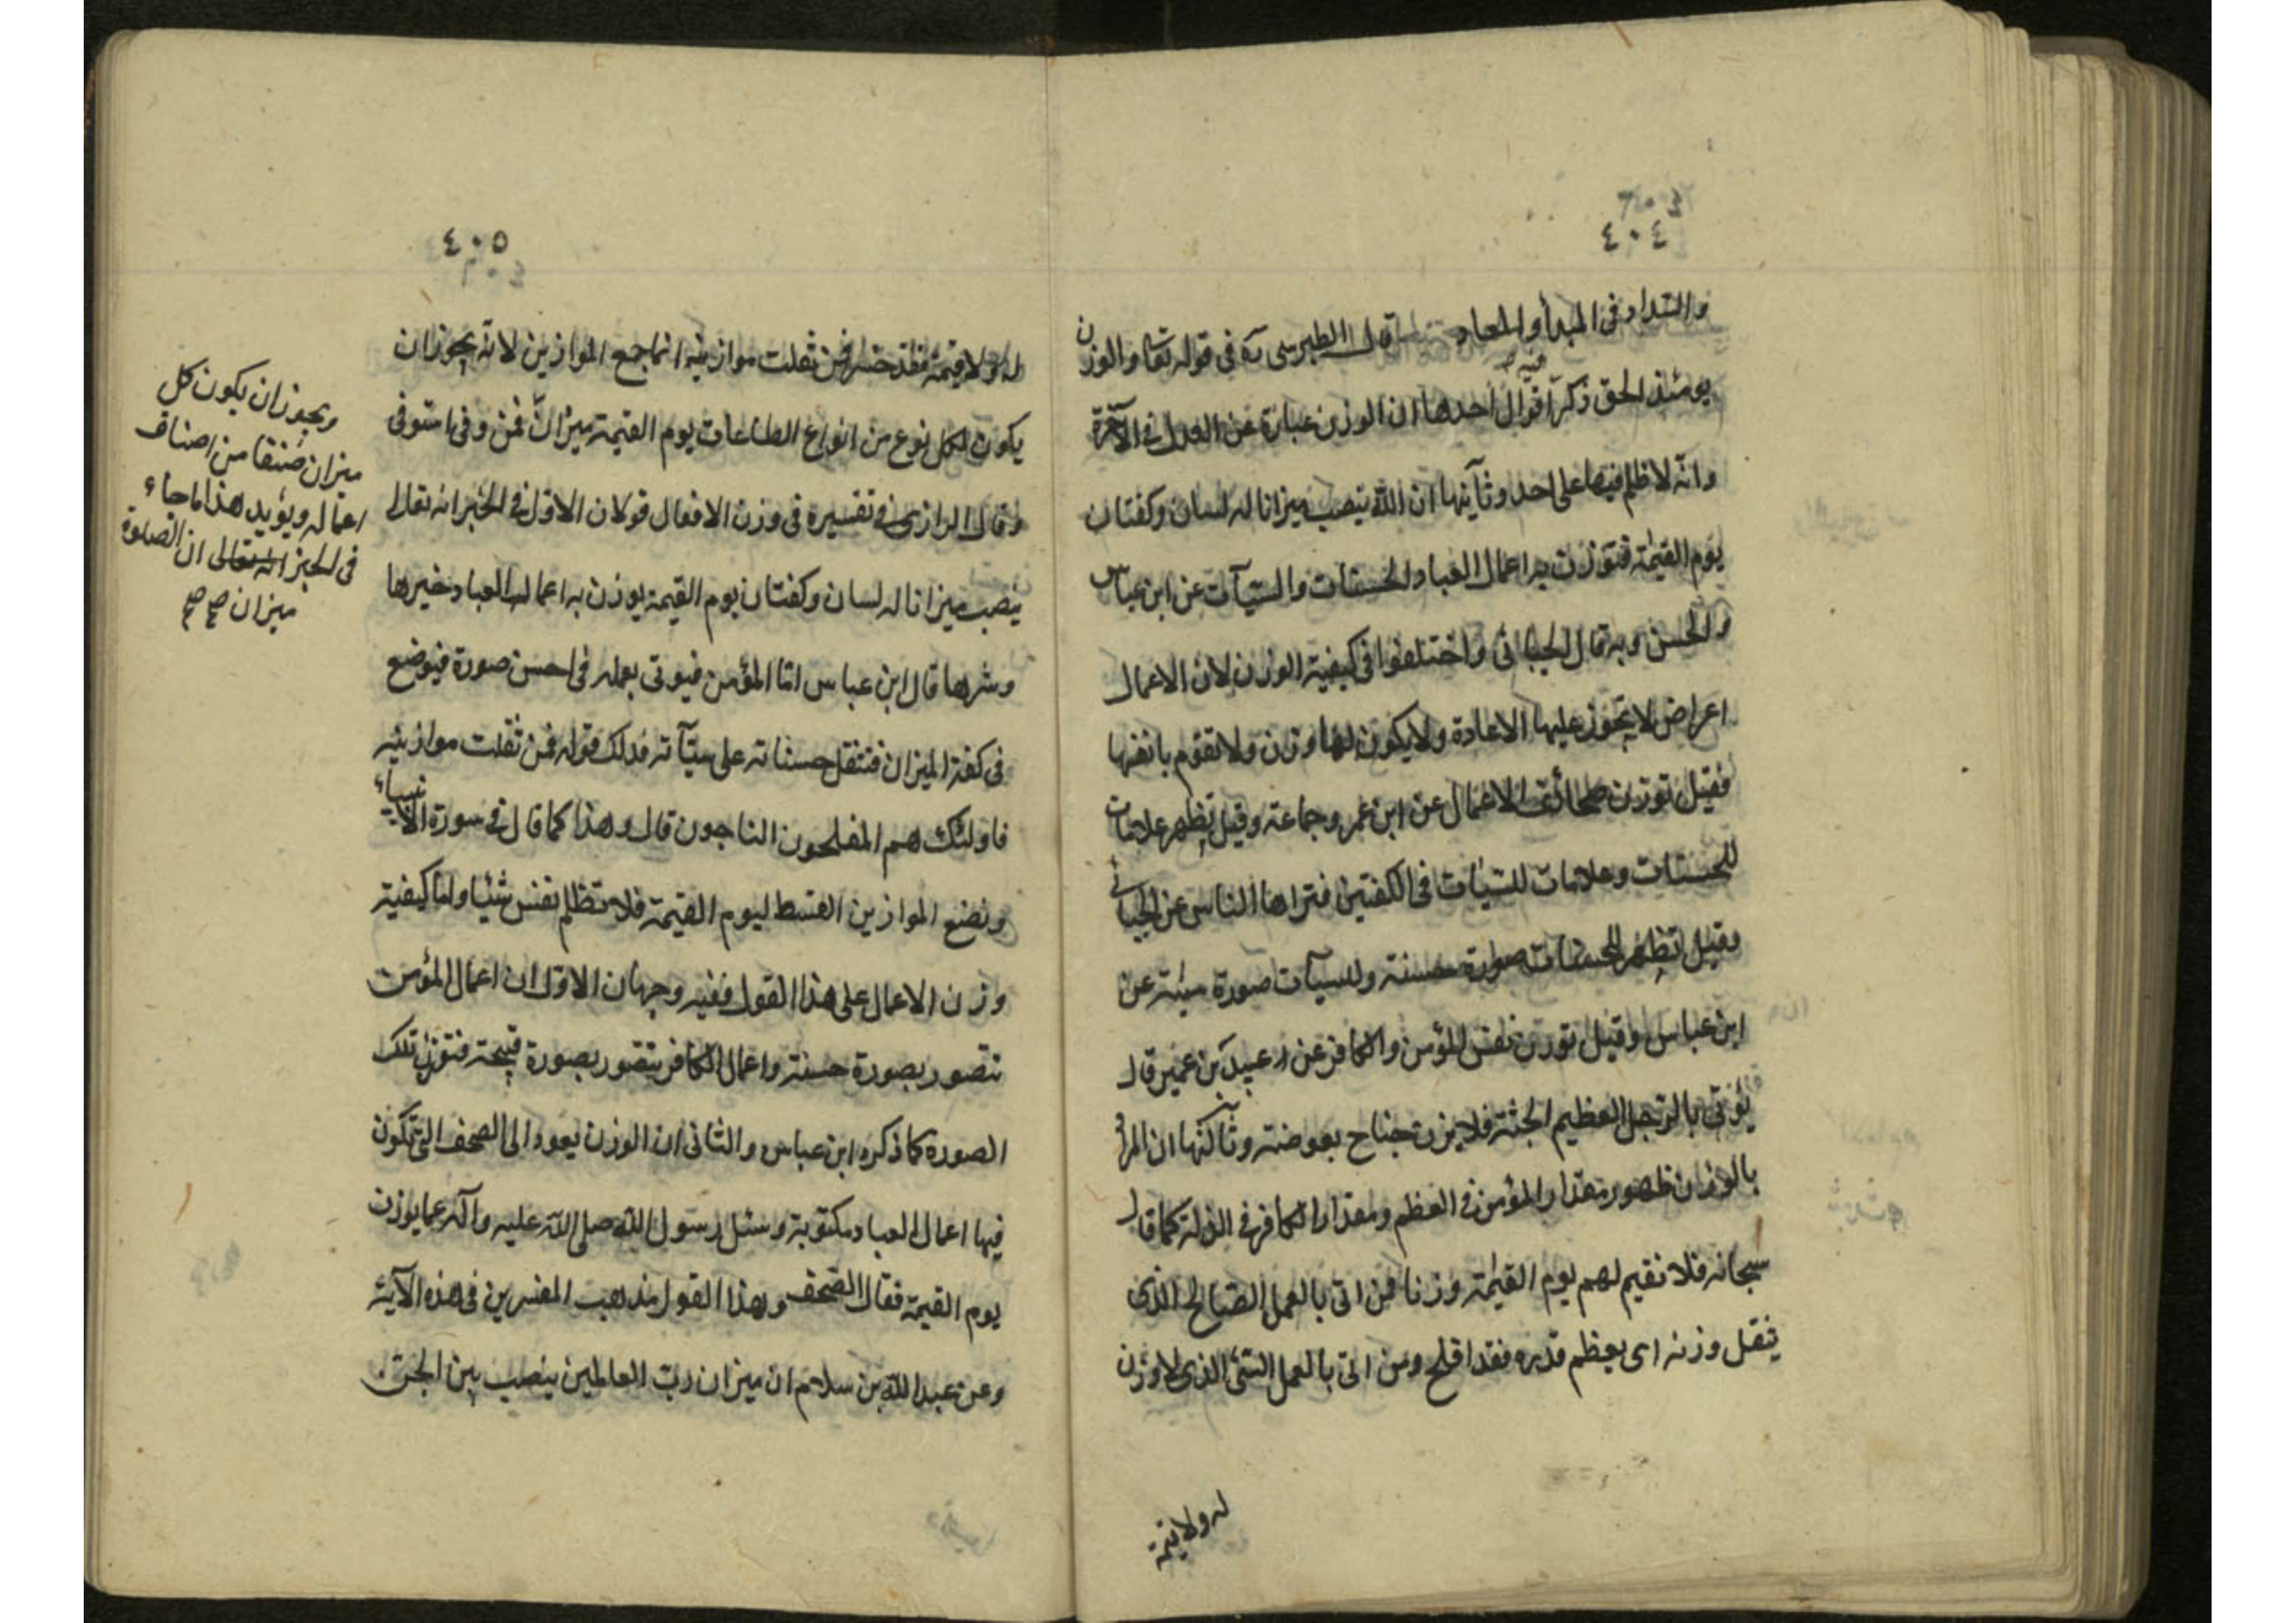 ٤٠٤
والسداد فى المبدأ والمعاد قال الطبرسى ره فى قوله تعا والوزن
يومئذ الحق ذكر فيه اقوال احدها ان الوزن عبارة عن العدل فى الآخرة
وانه لا ظلم فيها على احد وثانيها ان الله ينصب ميزانا له لسان وكفتان
يوم القيمة فتوزن به اعمال العباد الحسنات والسيآت عن ابن عباس
والحسن وبه قال الجبائى واختلفوا فى كيفية الوزن لان الاعمال
اعراض لا يجوز عليها الاعادة ولا يكون لها وزن ولا تقوم بانفسها
فقيل توزن صحائف الاعمال عن ابن عمر وجماعة وقيل يظهر علامات
للحسنات وعلامات للسيئات فى الكفتين فتراها الناس عن الجبائى
وقيل تظهر للحسنات صورة حسنة وللسيآت صورة سيئة عن
ابن عباس وقيل توزن نفس المؤمن والكافر عن عبيد بن عمير قال
يؤتى بالرجل العظيم الجثة فلا يزن جناح بعوضة وثالثها ان المراد
بالوزن ظهور مقدار المؤمن فى العظم ومقدار الكافر فى الذلة كما قال
سبحانه فلا نقيم لهم يوم القيمة وزنا فمن اتى بالعمل الصالح الذى
يثقل وزنه اى يعظم قدره فقد افلح ومن اتى بالعمل السيئ الذى لا وزن
له ولا قيمة
٤٠٥
له ولا قيمة فقد خسر فمن ثقلت موازينه انما جمع الموازين لانه يجوز ان
يكون لكل نوع من انواع الطاعات يوم القيمة ميزان فمن وفى استوفى
وقال الرازى فى تفسيره فى وزن الافعال قولان الاول فى الخبر انه تعالى
ينصب ميزانا له لسان وكفتان يوم القيمة يوزن به اعمال العباد خيرها
وشرها قال ابن عباس اما المؤمن فيوتى بعمله فى احسن صورة فيوضع
فى كفة الميزان فتثقل حسناته على سيآته فذلك قوله فمن ثقلت موازينه
فاولئك هم المفلحون الناجون قال وهذا كما قال فى سورة الانبياء
ونضع الموازين القسط ليوم القيمة فلا تظلم نفس شيئا واما كيفية
وزن الاعمال على هذا القول ففيه وجهان الاول ان اعمال المؤمن
تتصور بصورة حسنة واعمال الكافر يتصور بصورة قبيحة فتوزن تلك
الصورة كما ذكره ابن عباس والثانى ان الوزن يعود الى الصحف التى تكون
فيها اعمال العباد مكتوبة وسئل رسول الله صلى الله عليه وآله عما يوزن
يوم القيمة فقال الصحف وهذا القول مذهب المفسرين فى هذه الآية
وعن عبد الله بن سلام ان ميزان رب العالمين ينصب بين الجن
ويجوز ان يكون كل
ميزان صنفا من اصناف
اعماله ويؤيد هذا ما جاء
فى الخبر ان الصلوة
ميزان صح صح